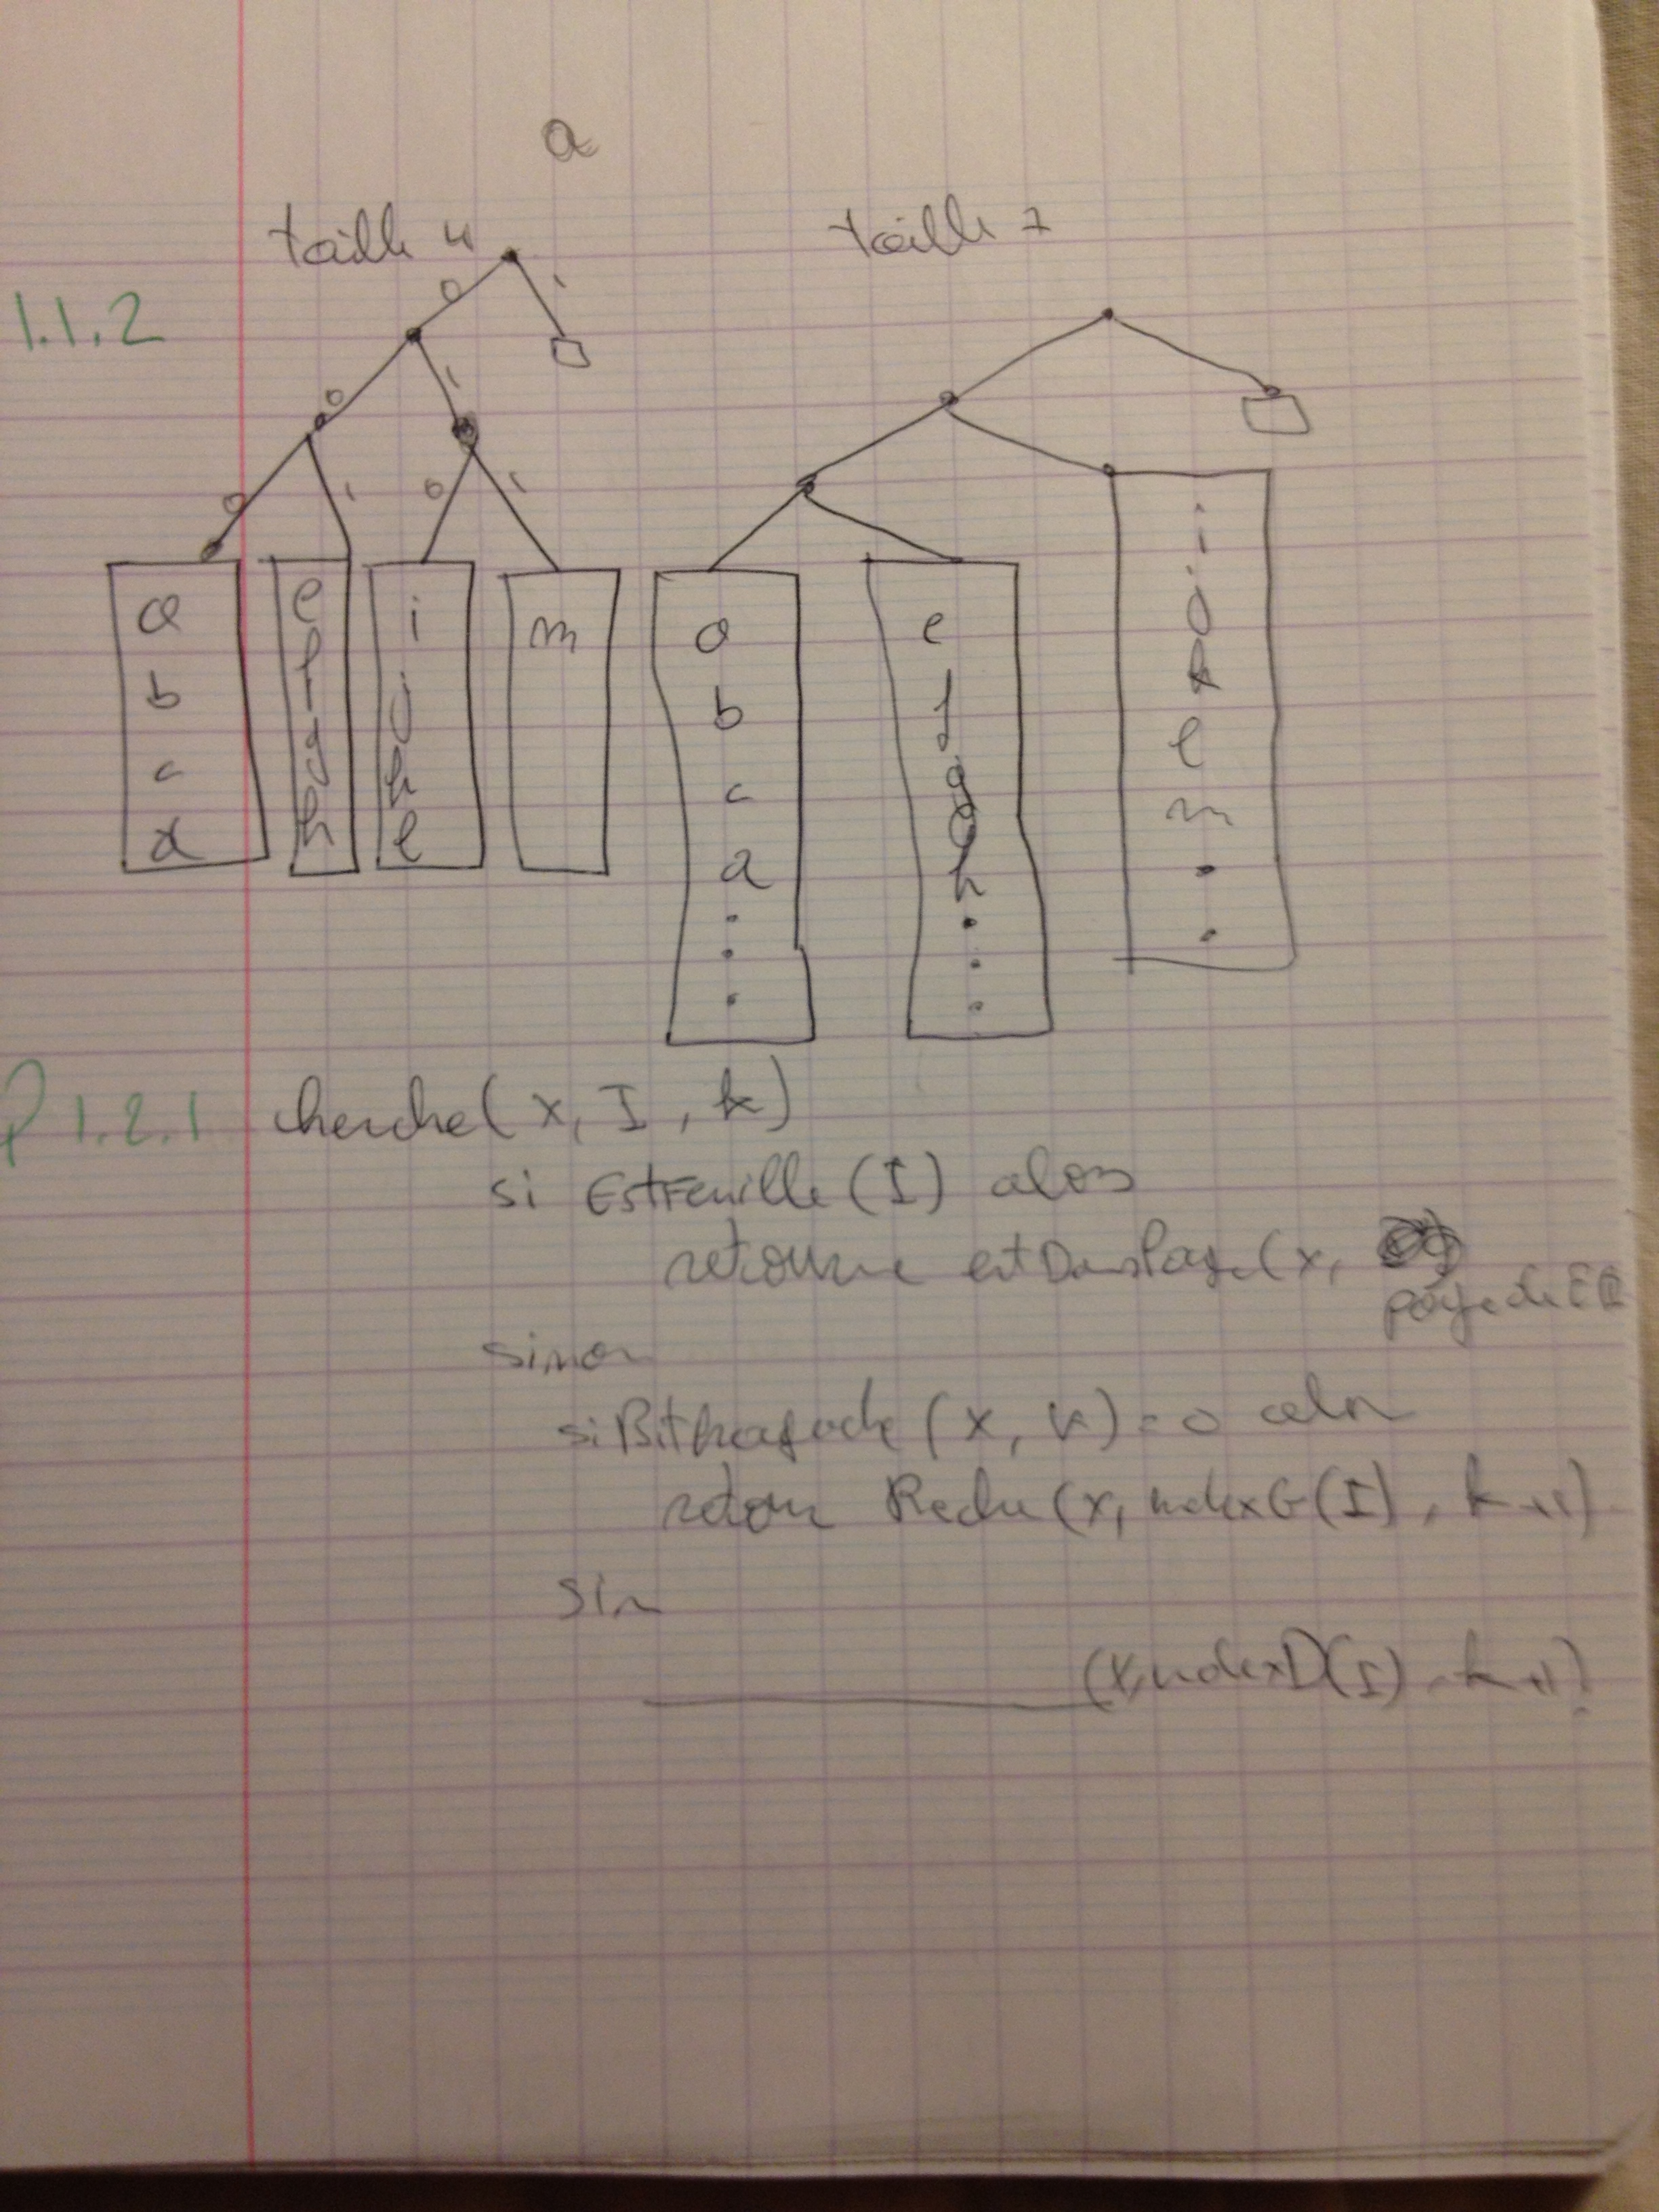 a
taille 4
taille 7
1.1.2
0 1
0 1
0 1 0 1
a
b
c
d
e
f
g
h
i
j
k
l
m
a
b
c
d
.
.
.
e
f
g
h
.
.
.
i
j
k
l
m
.
.
1.2.1 cherche(x, I, k)
si EstFeuille(I) alors
retourne estDansPage(x,
page de
sinon
si (x, k) = 0 alors
retour Reche(x, indexG(I), k+1)
sin
(x, indexD(I), k+1)